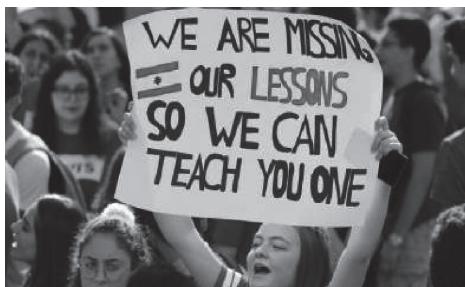 WE ARE MISSING
OUR LESSONS
SO WE CAN
TEACH YOU ONE